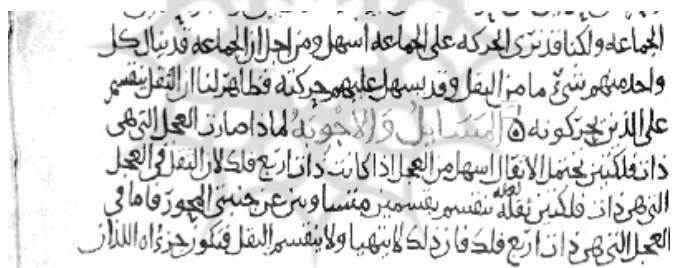 الجماعه ولكنا قد نرى الحركه على الجماعه اسهل ومن اجل ان الجماعه قد ينال كل
واحد منهم شىء ما من الثقل وقد يسهل عليهم حركته فظاهر لنا ان الثقل ينقسم
على الذين يحركونه ه المسايل والاجوبه لماذا صارت العجل التى هى
ذات فلكتين تحتمل الاثقال اسهل من العجل اذا كانت ذات اربع فلك لان الثقل فى العجل
التى هى ذات فلكتين ثقله ينقسم بقسمين متساويين عن جنبتى المحور فاما فى
العجل التى هى ذات اربع فلك فان ذلك لا يتهيا ولا ينقسم الثقل فيكون جزءاه اللذان